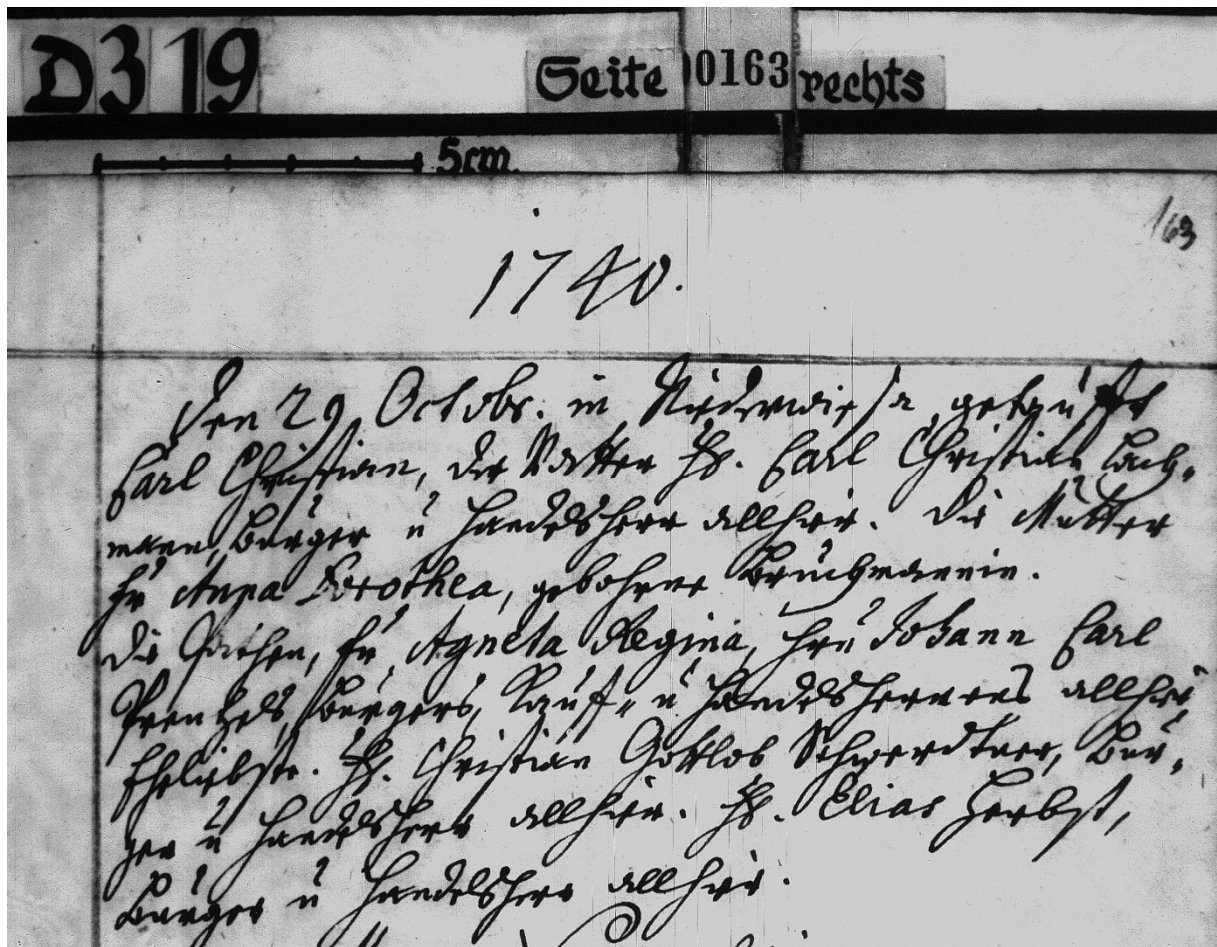 D319 Seite 00163 rechts
5cm.
163
1740.
Den 29 Octobr. in Niederwiesa, getaufft
Carl Christian, der Vatter Hr. Carl Christian Lach-
mann, Bürger ŭ Handelsherr allhier. Die Mutter
Fr Anna Dorothea, gebohrne Bruchmannin.
Die Pathen, Fr. Agneta Regina, Hrn Johann Carl
Prentzels, Bürgers, Kauff- ŭ Handelsherrens allhier
Eheliebste. Hr. Christian Gottlob Schwerdtner, Bür-
ger ŭ Handelsherr allhier. Hr. Elias Herbst,
Bürger ŭ Handelsherr allhier.